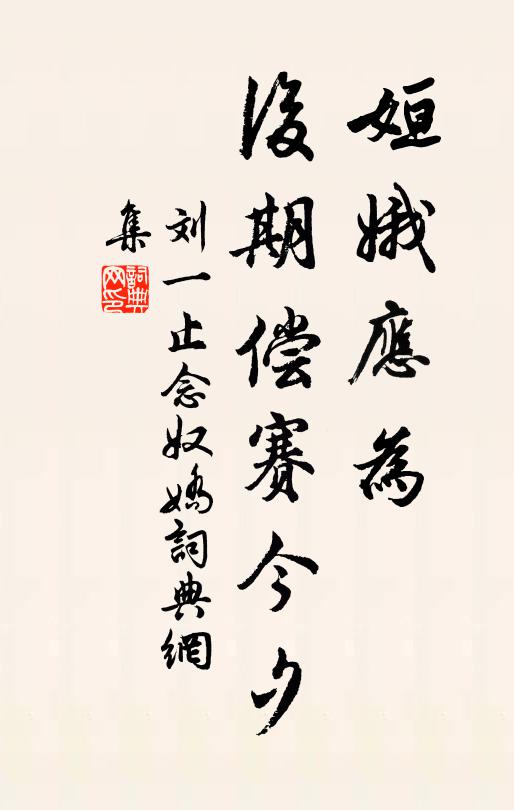 姮娥應為
後期偿賽今夕
刘一止念奴嬌詞典網
集
詞典网印